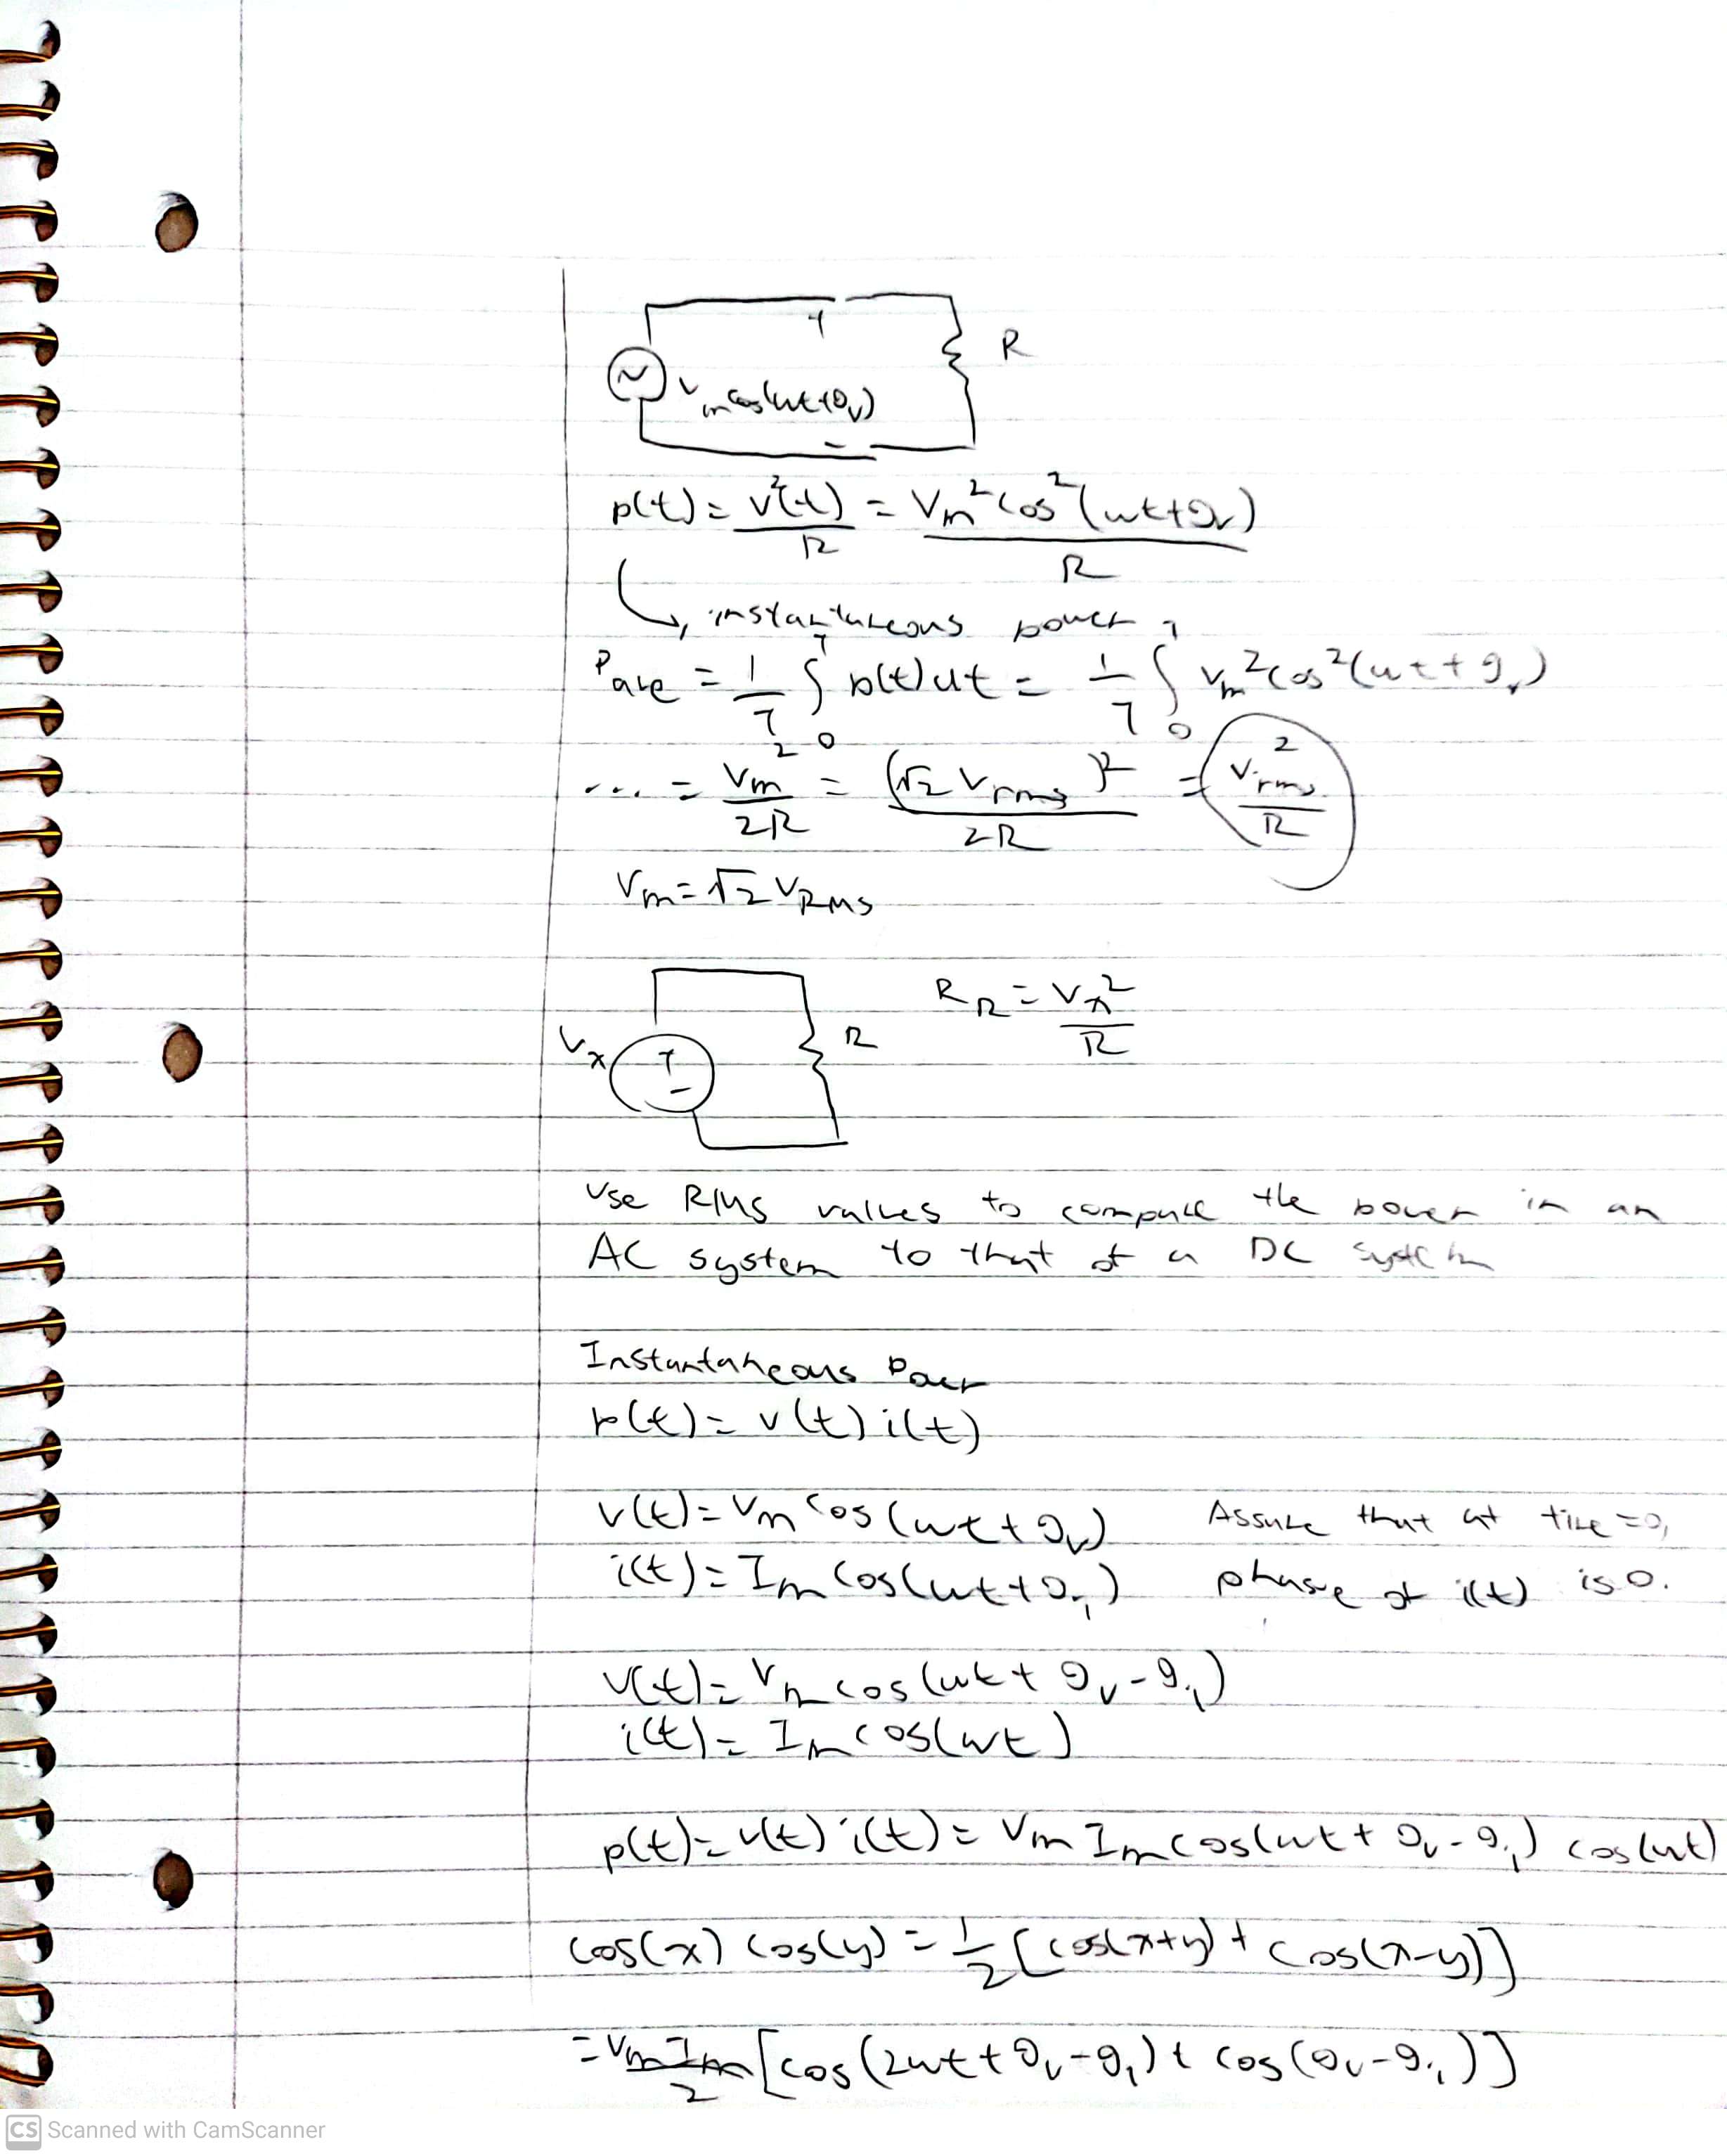 +
R
~ Vm cos(ωt+θv)
-
p(t) = v²(t)/R = Vm² cos²(ωt+θv)/R
↳ instantaneous power
Pave = 1/T ∫₀ᵀ p(t)dt = 1/T ∫₀ᵀ Vm² cos²(ωt+θv)
... = Vm²/2R = (√2 Vrms)²/2R = Vrms²/R
Vm = √2 VRMS
Vx + - R PR = Vx²/R
Use RMS values to compare the power in an
AC system to that of a DC system
Instantaneous Power
p(t) = v(t) i(t)
v(t) = Vm cos(ωt+θv) Assume that at time=0,
i(t) = Im cos(ωt+θi) phase of i(t) is 0.
v(t) = Vm cos(ωt+θv-θi)
i(t) = Im cos(ωt)
p(t) = v(t) i(t) = Vm Im cos(ωt+θv-θi) cos(ωt)
cos(x) cos(y) = 1/2 [cos(x+y) + cos(x-y)]
= Vm Im/2 [cos(2ωt+θv-θi) + cos(θv-θi)]
CS Scanned with CamScanner